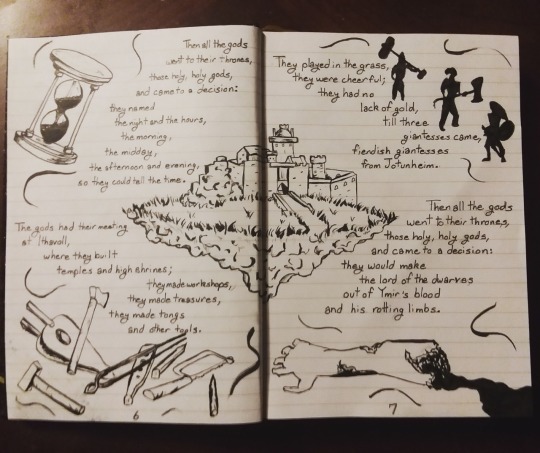 Then all the gods
went to their thrones,
those holy, holy gods,
and came to a decision:
they named
the night and the hours,
the morning,
the midday,
the afternoon and evening,
so they could tell the time.
The gods had their meeting
at Ithavoll,
where they built
temples and high shrines;
they made workshops,
they made treasures,
they made tongs
and other tools.
6
They played in the grass,
they were cheerful;
they had no
lack of gold,
till three
giantesses came,
fiendish giantesses
from Jotunheim.
Then all the gods
went to their thrones,
those holy, holy gods,
and came to a decision:
they would make
the lord of the dwarves
out of Ymir's blood
and his rotting limbs.
7